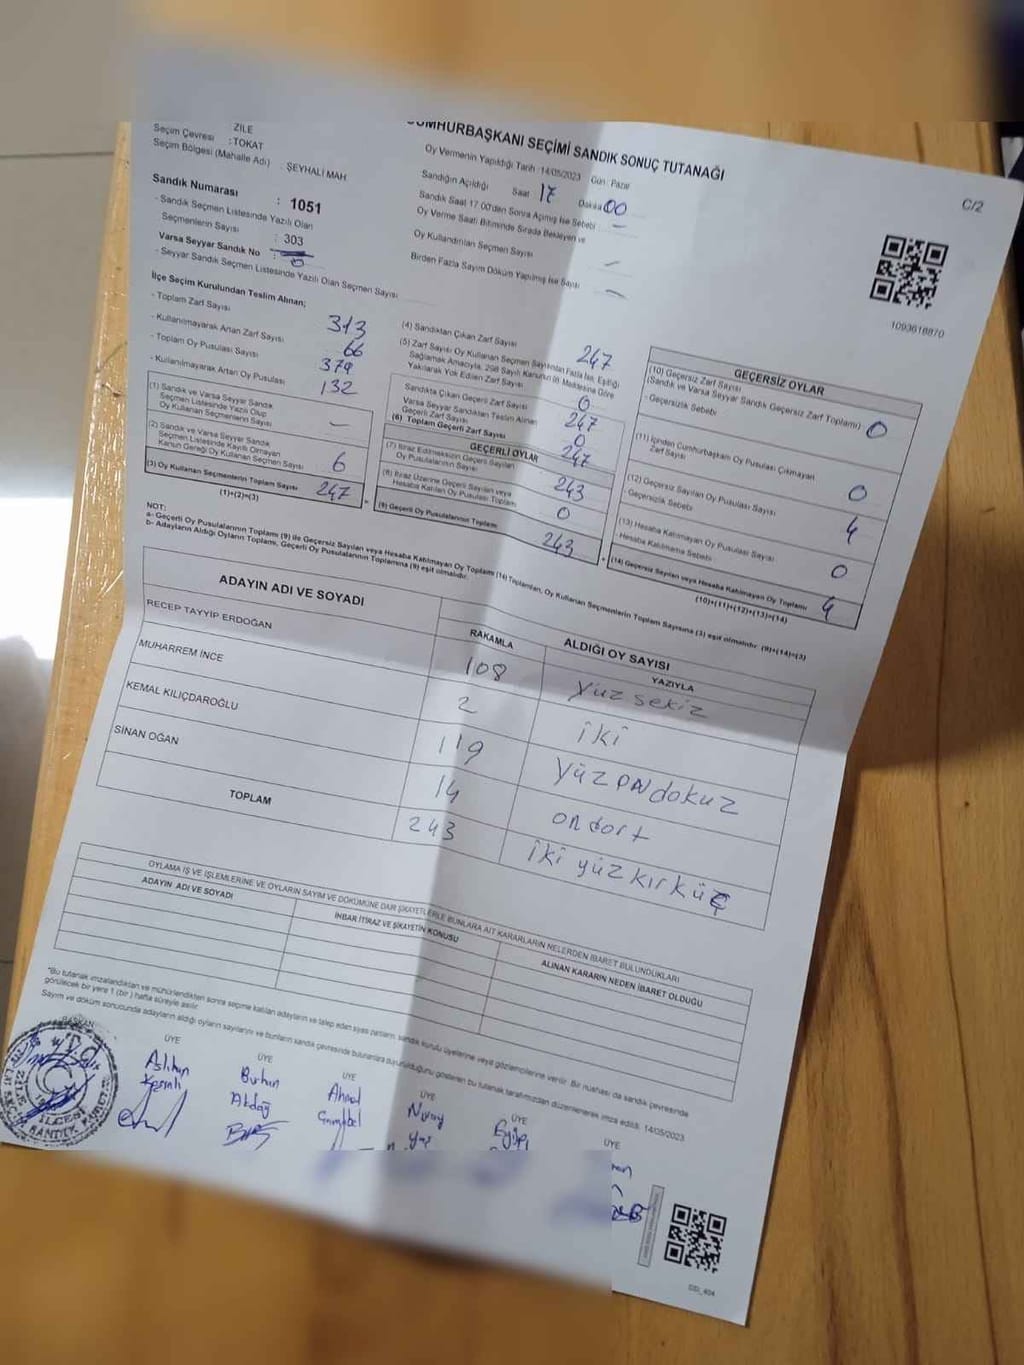 CUMHURBAŞKANI SEÇİMİ SANDIK SONUÇ TUTANAĞI
C/2
ZİLE
Seçim Çevresi : TOKAT
Seçim Bölgesi (Mahalle Adı) : ŞEYHALİ MAH
Sandık Numarası : 1051
- Sandık Seçmen Listesinde Yazılı Olan
Seçmenlerin Sayısı : 303
Varsa Seyyar Sandık No
- Seyyar Sandık Seçmen Listesinde Yazılı Olan Seçmen Sayısı 0
Oy Vermenin Yapıldığı Tarih : 14/05/2023 Gün : Pazar
Sandığın Açıldığı Saat 17 Dakika 00
Sandık Saat 17.00'den Sonra Açılmış İse Sebebi —
Oy Verme Saati Bitiminde Sırada Bekleyen ve
Oy Kullandırılan Seçmen Sayısı —
Birden Fazla Sayım Döküm Yapılmış İse Sayısı —
1093618870
İlçe Seçim Kurulundan Teslim Alınan;
- Toplam Zarf Sayısı 313
- Kullanılmayarak Artan Zarf Sayısı 66
- Toplam Oy Pusulası Sayısı 379
- Kullanılmayarak Artan Oy Pusulası 132
(1) Sandık ve Varsa Seyyar Sandık
Seçmen Listesinde Yazılı Olup
Oy Kullanan Seçmenlerin Sayısı —
(2) Sandık ve Varsa Seyyar Sandık
Seçmen Listesinde Kayıtlı Olmayan
Kanun Gereği Oy Kullanan Seçmen Sayısı 6
(3) Oy Kullanan Seçmenlerin Toplam Sayısı 247
(1)+(2)=(3)
(4) Sandıktan Çıkan Zarf Sayısı 247
(5) Zarf Sayısı Oy Kullanan Seçmen Sayısından Fazla İse, Eşitliği
Sağlamak Amacıyla, 298 Sayılı Kanunun 98 Maddesine Göre
Yakılarak Yok Edilen Zarf Sayısı 0
Sandıkta Çıkan Geçerli Zarf Sayısı 247
Varsa Seyyar Sandıktan Teslim Alınan
Geçerli Zarf Sayısı 0
(6) Toplam Geçerli Zarf Sayısı 247
GEÇERLİ OYLAR
(7) İtiraz Edilmeksizin Geçerli Sayılan
Oy Pusulalarının Sayısı 243
(8) İtiraz Üzerine Geçerli Sayılan veya
Hesaba Katılan Oy Pusulası Toplam 0
(9) Geçerli Oy Pusulalarının Toplamı 243
GEÇERSİZ OYLAR
(10) Geçersiz Zarf Sayısı
(Sandık ve Varsa Seyyar Sandık Geçersiz Zarf Toplamı) 0
- Geçersizlik Sebebi
(11) İçinden Cumhurbaşkanı Oy Pusulası Çıkmayan
Zarf Sayısı 0
(12) Geçersiz Sayılan Oy Pusulası Sayısı 4
- Geçersizlik Sebebi
(13) Hesaba Katılmayan Oy Pusulası Sayısı 0
- Hesaba Katılmama Sebebi
(14) Geçersiz Sayılan veya Hesaba Katılmayan Oy Toplamı 4
(10)+(11)+(12)+(13)=(14)
NOT:
a- Geçerli Oy Pusulalarının Toplamı (9) ile Geçersiz Sayılan veya Hesaba Katılmayan Oy Toplamı (14) Toplamları, Oy Kullanan Seçmenlerin Toplam Sayısına (3) eşit olmalıdır. (9)+(14)=(3)
b- Adayların Aldığı Oyların Toplamı, Geçerli Oy Pusulalarının Toplamına (9) eşit olmalıdır.
ADAYIN ADI VE SOYADI
ALDIĞI OY SAYISI
RAKAMLA
YAZIYLA
RECEP TAYYİP ERDOĞAN 108 yüz sekiz
MUHARREM İNCE 2 iki
KEMAL KILIÇDAROĞLU 119 yüz on dokuz
SİNAN OĞAN 14 on dort
TOPLAM 243 iki yüz kırk üç
OYLAMA İŞ VE İŞLEMLERİNE VE OYLARIN SAYIM VE DÖKÜMÜNE DAİR ŞİKAYETLERLE BUNLARA AİT KARARLARIN NELERDEN İBARET BULUNDUKLARI
ADAYIN ADI VE SOYADI
İHBAR İTİRAZ VE ŞİKAYETİN KONUSU
ALINAN KARARIN NEDEN İBARET OLDUĞU
*Bu tutanak imzalandıktan ve mühürlendikten sonra seçime katılan adayların ve talep eden siyasi partilerin, sandık kurulu üyelerine veya gözlemcilerine verilir. Bir nushası da sandık çevresinde
görülecek bir yere 1 (bir) hafta süreyle asılır.
Sayım ve döküm sonucunda adayların aldığı oyların sayılarını ve bunların sandık çevresinde bulunanlara duyurulduğunu gösteren bu tutanak tarafımızdan düzenlenerek imza edildi. 14/05/2023
BAŞKAN
ÜYE
ÜYE
ÜYE
ÜYE
ÜYE
ÜYE
Aslıhan
Burhan
Akdağ
Ahmet
Nuray
Eyüp
ZİLE
İLÇESİ
SANDIK KURULU